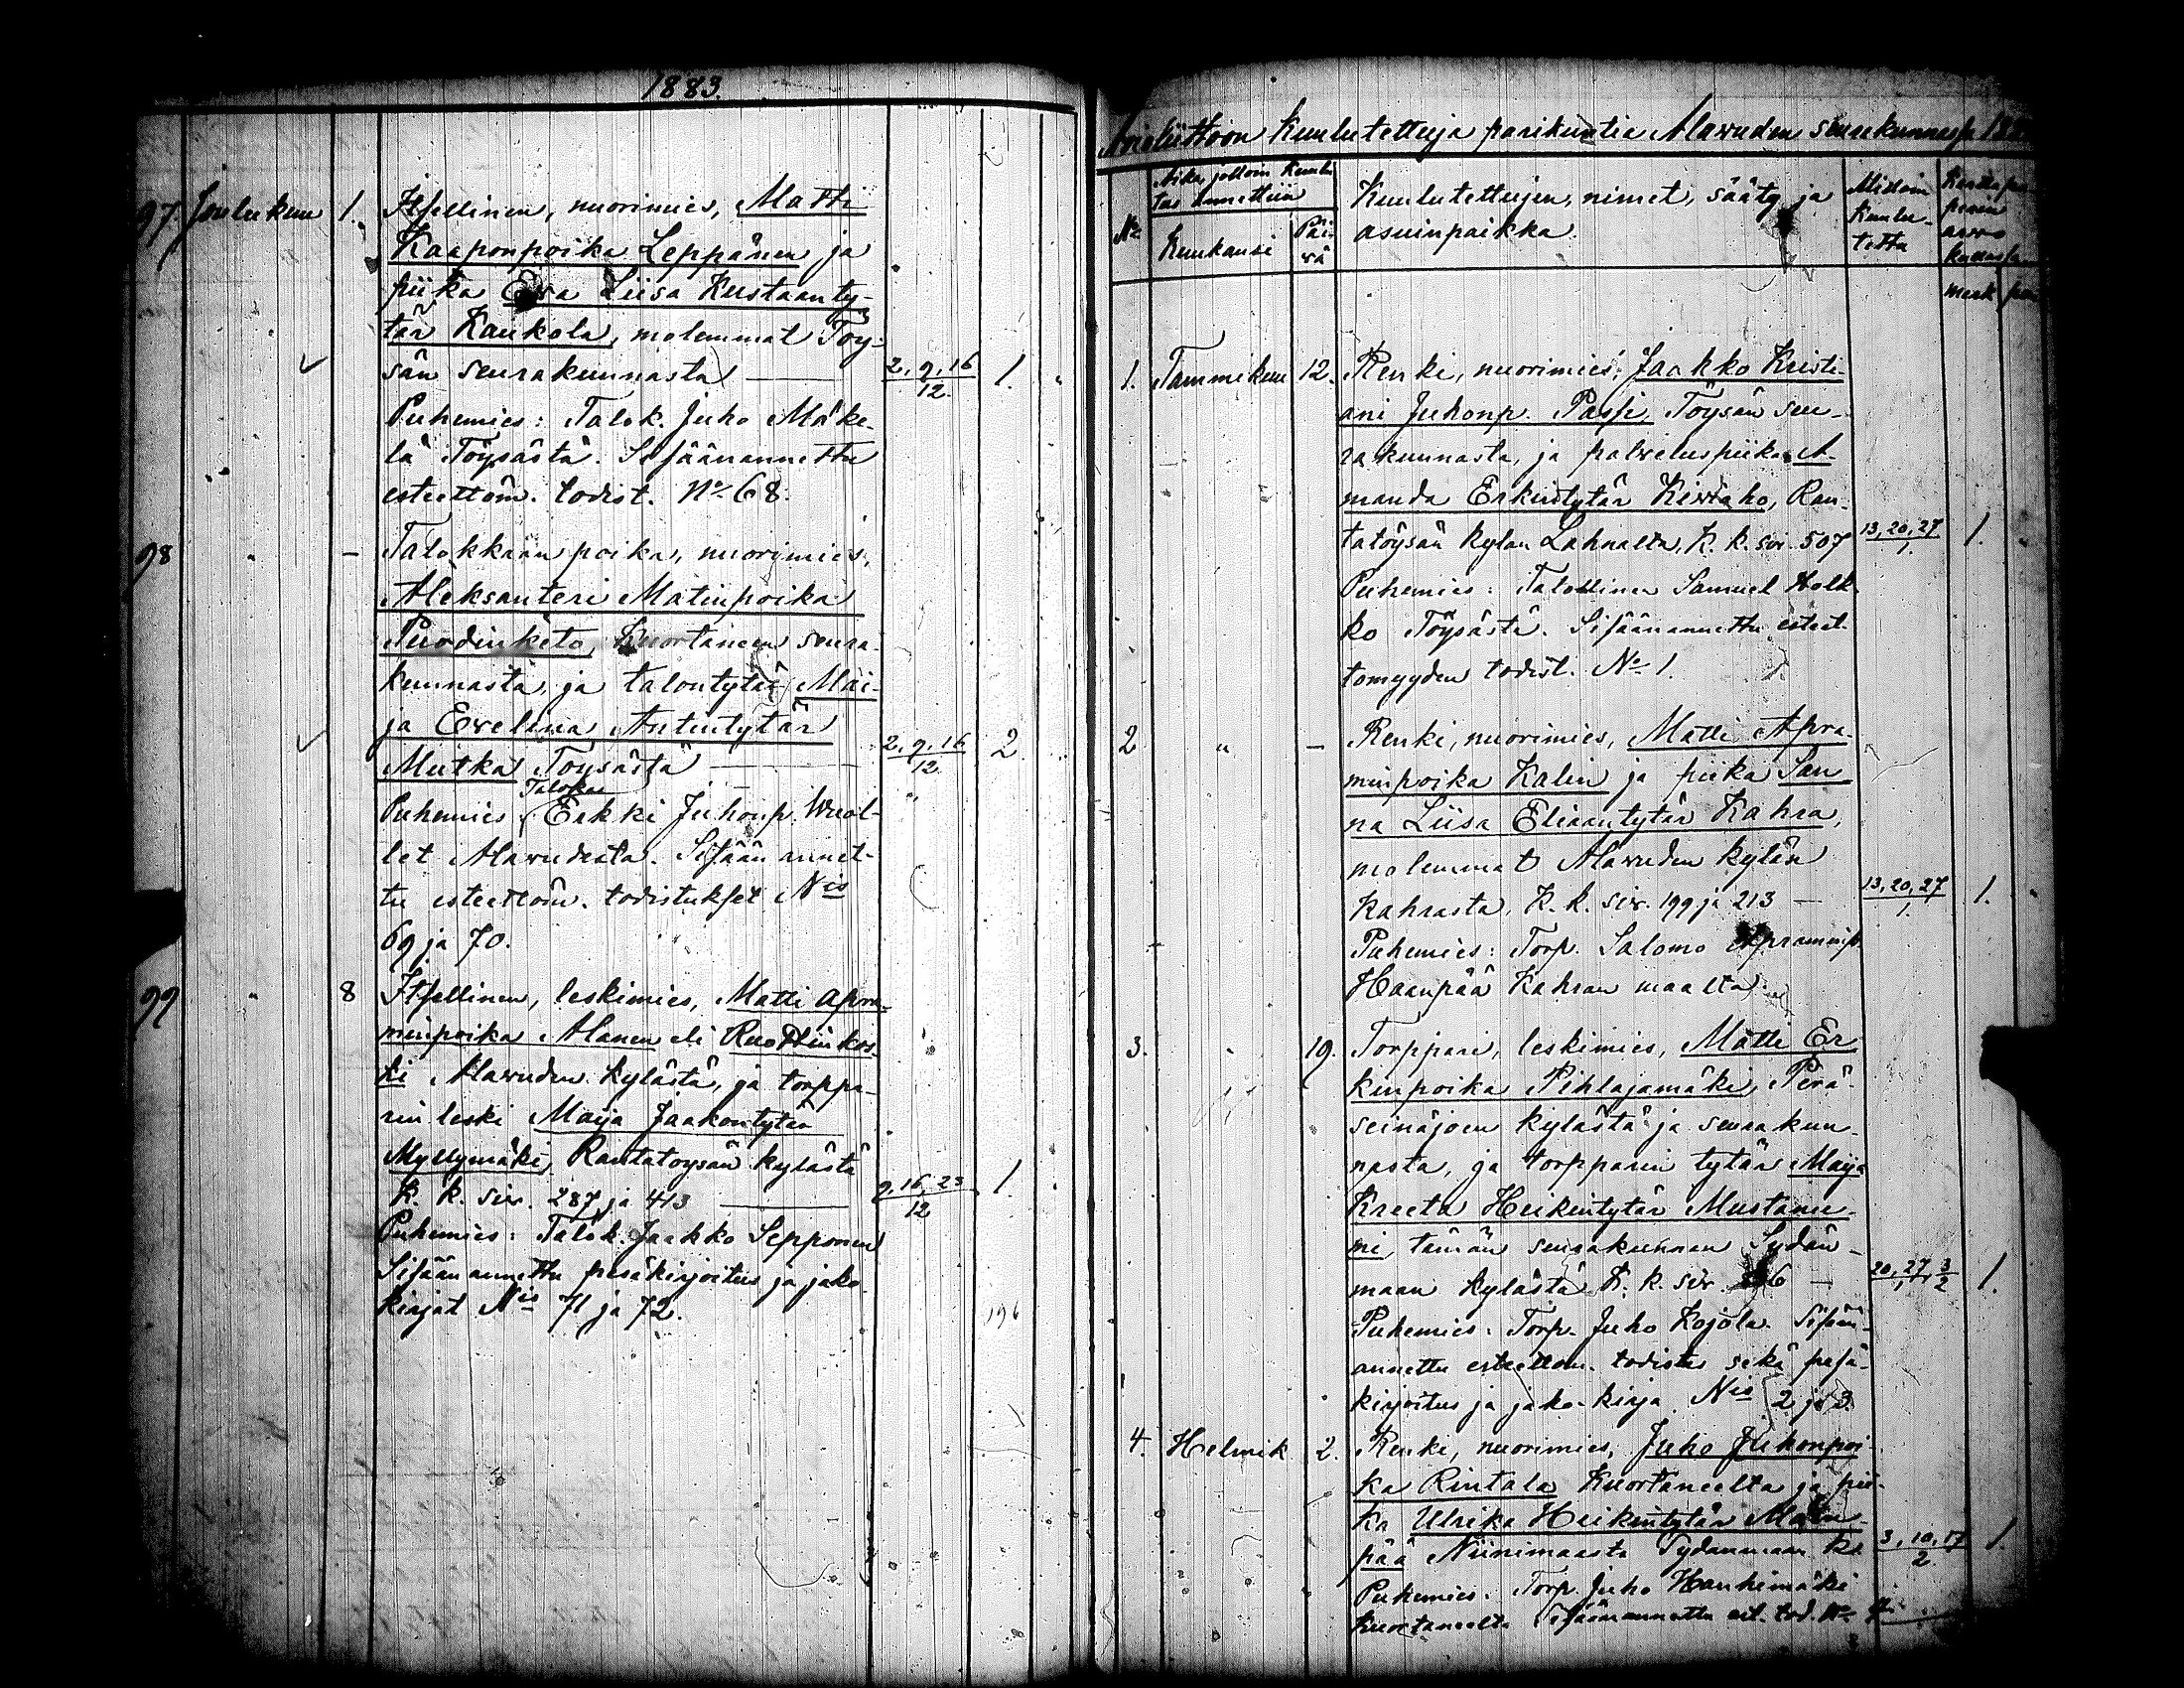 1883.
97 Joulukuu 1. Itsellinen, nuorimies, Matti
Kaaponpoika Leppänen ja
piika Ewa Liisa Kustaanty-
tär Kaukola, molemmat Töy-
sän seurakunnasta 2, 9, 16/12. 1.
Puhemies: Talok. Juho Mäke-
lä Töysästä. Sisäänannettu
esteettöm. todist. No 68.
98 " - Talokkaan poika, nuorimies,
Aleksanteri Matinpoika
Puodinketo, Kuortaneen seura-
kunnasta, ja talontytär Mai-
ja Ewelina Antintytär
Mutka Töysästä 2, 9, 16/12. 2
Talokas
Puhemies Erkki Juhonp. Wuol-
let Alawudesta. Sisäänannet-
tu esteettöm. todistukset Nis
69 ja 70.
99 " 8 Itsellinen, leskimies, Matti Apra-
minpoika Alanen eli Ruottinkos-
ki Alawuden kylästä, ja torppa-
rin leski Maija Jaakontytär
Myllymäki, Rantatöysän kylästä
K. k. siw. 287 ja 413 9, 16, 23/12 1.
Puhemies: Talok. Jaakko Sepponen
Sisäänannettu pesäkirjoitus ja jako-
kirjat Nis 71 ja 72.
196
Awioliittoon Kuulutettuja parikuntia Alawuden seurakunnassa
No
Aika, jolloin Kuulu-
tus annettiin
Kuukausi
Päi-
wä
Kuulutettujen, nimet, sääty ja
asuinpaikka
Milloin
Kuulu-
tettu
1. Tammikuu 12. Renki, nuorimies, Jaakko Kristi-
ani Juhonp. Passi, Töysän seu-
rakunnasta, ja palweluspiika A-
manda Erkintytär Kiwiaho, Ran-
tatöysän kylän Lahnalta, K. k. siw. 507 13, 20, 27/1. 1.
Puhemies: Talollinen Samuel Holk-
ko Töysästä. Sisäänannettu esteet-
tömyyden todist. No 1.
2 " - Renki, nuorimies, Matti Apra-
minpoika Kalin ja piika San-
na Liisa Eliaantytär Kahra,
molemmat Alawuden kylän
Kahrasta, K. k. siw. 199 ja 213 13, 20, 27/1. 1.
Puhemies: Torp. Salomo Apraminp.
Haanpää Kahran maalta
3. " 19. Torppari, leskimies, Matti Er-
kinpoika Pihlajamäki, Perä-
seinäjoen kylästä ja seurakun-
nasta, ja torpparin tytär Maija
Kreeta Heikintytär Mustanie-
mi, tämän seurakunnan Sydän-
maan kylästä K. k. siw. 20, 27/1, 3/2 1.
Puhemies: Torp. Juho Kojola. Sisään-
annettu esteettöm. todistus sekä pesä-
kirjoitus ja jako-kirja Nis 2 ja 3.
4. Helmik 2. Renki, nuorimies, Juho Juhonpoi-
ka Rintala Kuortaneelta ja pii-
ka Ulrika Heikintytär
pää Niinimaasta Sydänmaan k. 3, 10, 17/2 1.
Puhemies: Torp. Juho Hanhimäki
Kuortaneelta Sisäänannettu est. tod. No 4.